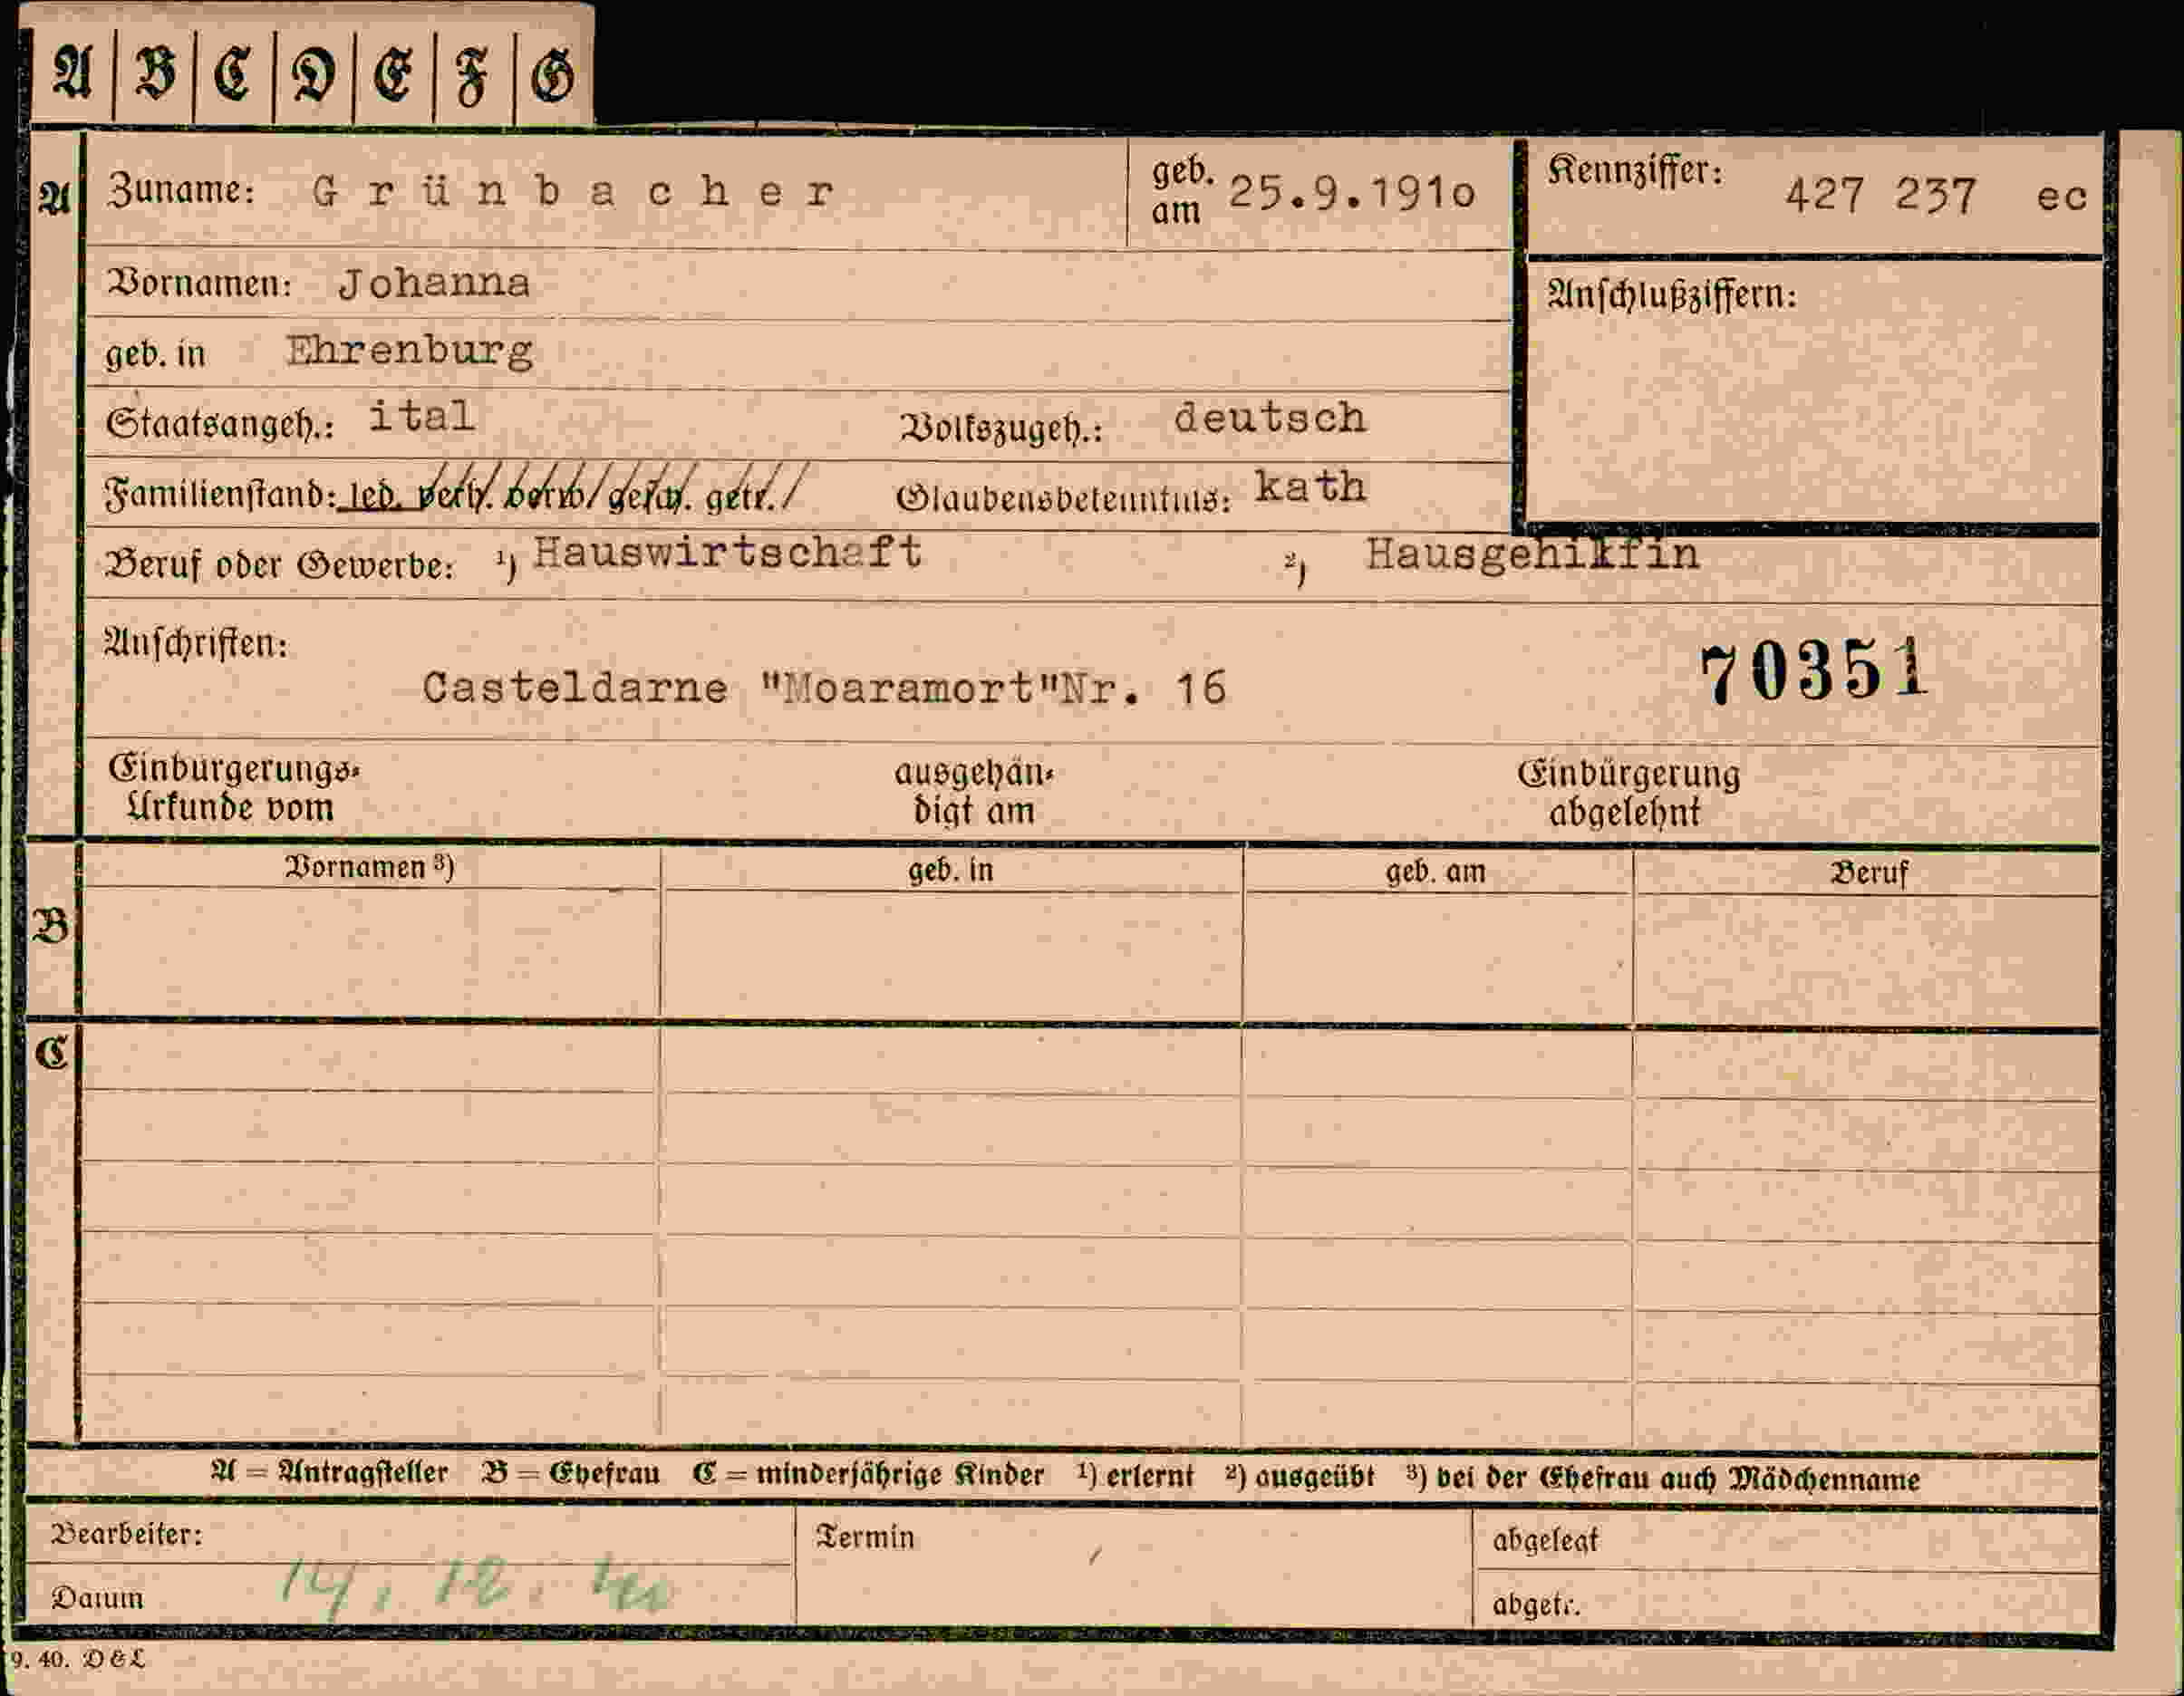 A B C D E F G
A Zuname: Grünbacher geb. am 25.9.191o Kennziffer: 427 237 ec
Vornamen: Johanna
Anschlußziffern:
geb. in Ehrenburg
Staatsangeh.: ital Volkszugeh.: deutsch
Familienstand: led. verh. verw. gesch. getr. Glaubensbekenntnis: kath
Beruf oder Gewerbe: ¹) Hauswirtschaft ²) Hausgehikfin
Anschriften:
Casteldarne "Moaramort"Nr. 16
70351
Einbürgerungs- ausgehän- Einbürgerung
Urkunde vom digt am abgelehnt
Vornamen ³) geb. in geb. am Beruf
B
C
A = Antragsteller B = Ehefrau C = minderjährige Kinder ¹) erlernt ²) ausgeübt ³) bei der Ehefrau auch Mädchenname
Bearbeiter: Termin abgelegt
Datum 14. 12. 40 abgetr.
9. 40. D & L